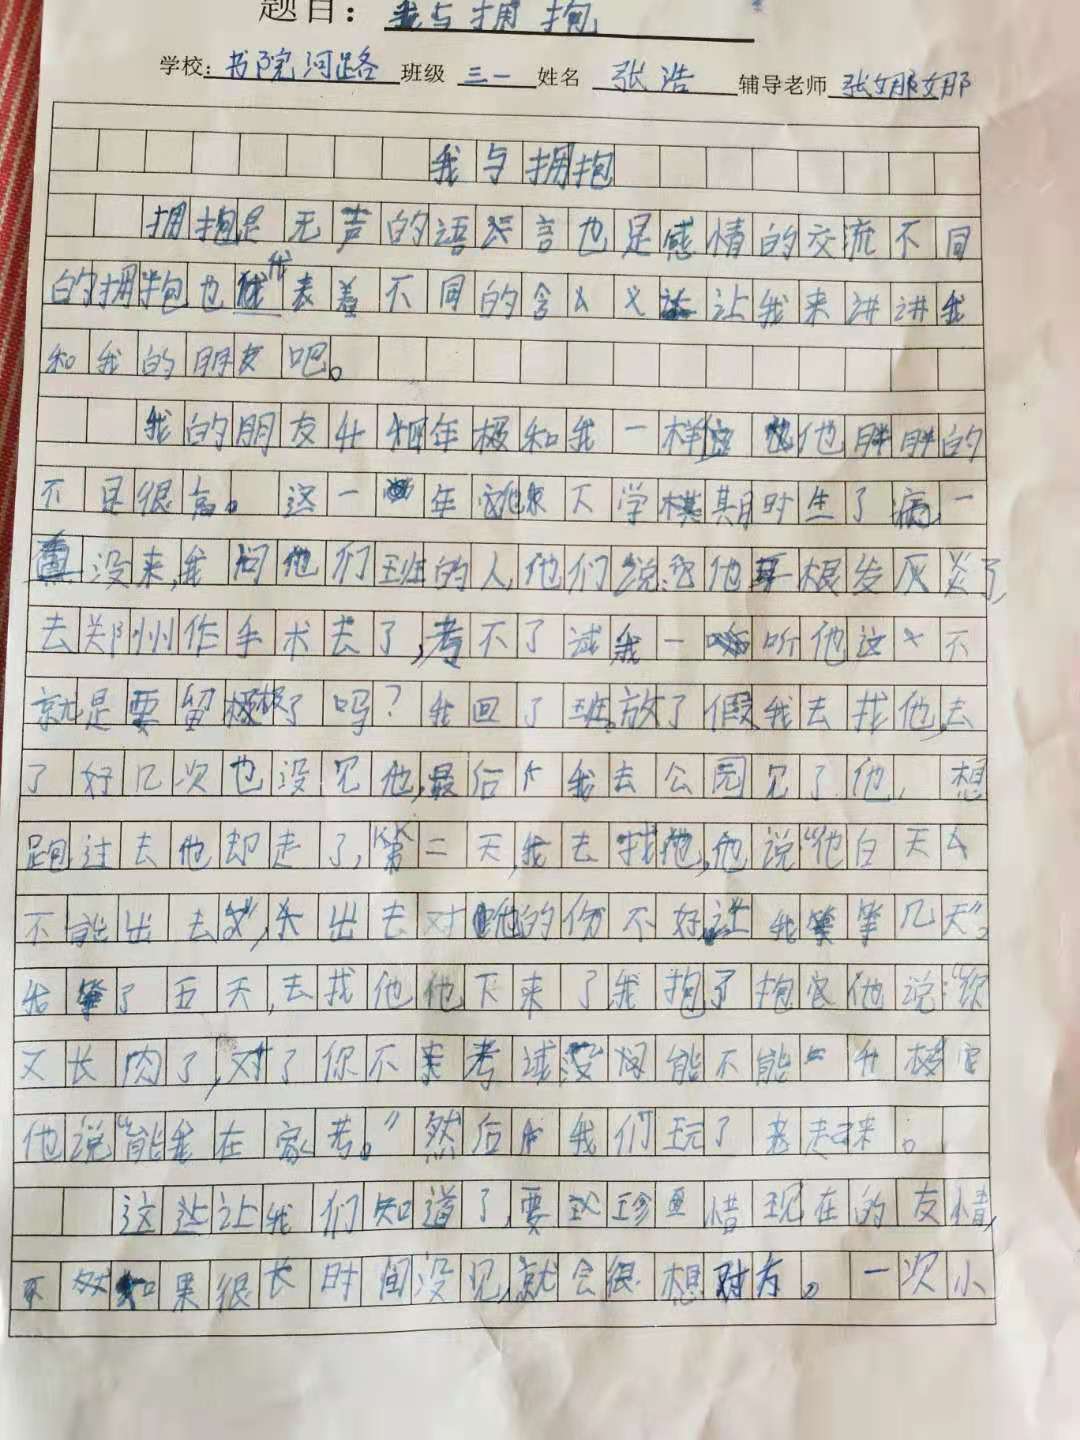 题目：我与拥抱
学校：书院河路 班级 三一 姓名 张浩 辅导老师 张娜娜
我与拥抱
拥抱是无声的语言也是感情的交流不同
的拥抱也代表着不同的含义让我来讲讲我
和我的朋友吧。
我的朋友年极和我一样他胖胖的
不是很高。这一年下学期时生了病一
没来,我问他们班的人,他们说他耳根发灰炎了,
去郑州作手术去了,考不了试我一听他这不
就是要留极了吗？我回了班。放了假我去找他,去
了好几次也没见他,最后我去公园见了他,想
跑过去他却走了,第二天,我去找他,他说“他白天
不能出去”,出去对他的伤不好,让我等几天”。
我等了五天,去找他他下来了我抱了抱它他说:“你
又长肉了,对了你不来考试没问能不能升极
他说“能我在家考。”然后我们玩了起来。
这让我们知道了,要珍惜现在的友情,
如果很长时间没见,就会很想对方。一次小